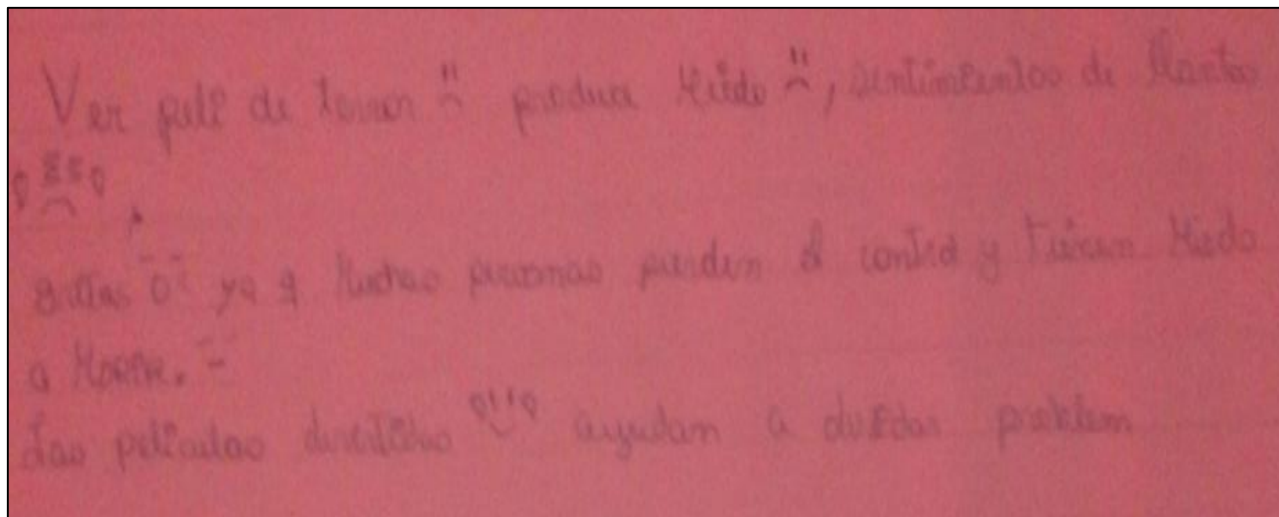 Ver peli de terror produce Miedo, sentimientos de llantos
gritos ya q Muchas personas pierden el control y Tienen Miedo
a MORIR.
Las películas divertidas ayudan a olvidar problem